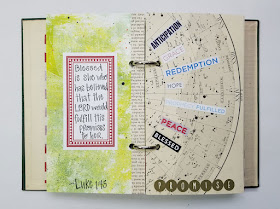 Blessed
is she who
has believed
that the
LORD would
fulfill His
promises
to her.
Luke 1:45
ANTICIPATION
REDEMPTION
HOPE
FULFILLED
PEACE
BLESSED
PROMISE